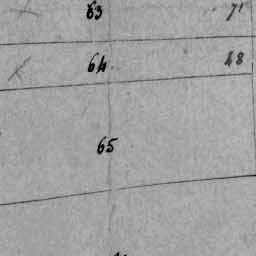 63 71
64 48
65